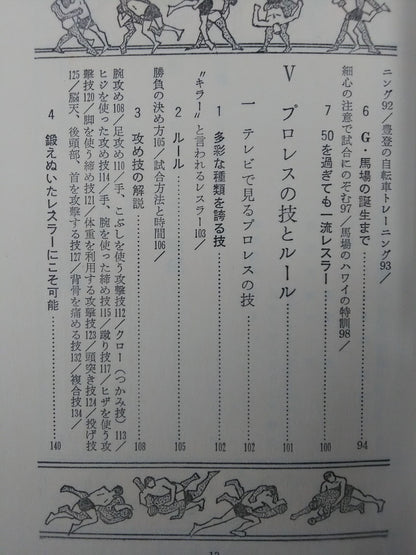 ニング92／豊登の自転車トレーニング93／
6 G・馬場の誕生まで……94
細心の注意で試合にのぞむ97／馬場のハワイの特訓98／
7 50を過ぎても一流レスラー……100
V プロレスの技とルール……101
一 テレビで見るプロレスの技……102
1 多彩な種類を誇る技……102
〝キラー〟と言われるレスラー103／
2 ルール……105
勝負の決め方105／試合方法と時間106／
3 攻め技の解説……108
腕攻め108／足攻め110／手、こぶしを使う攻撃技112／クロー（つかみ技）113／
ヒジを使った攻め技114／手、腕を使った締め技115／蹴り技117／ヒザを使う攻
撃技120／脚を使う締め技121／体重を利用する攻撃技123／頭突き技124／投げ技
125／脳天、後頭部、首を攻撃する技127／背骨を痛める技132／複合技134／
4 鍛えぬいたレスラーにこそ可能……140